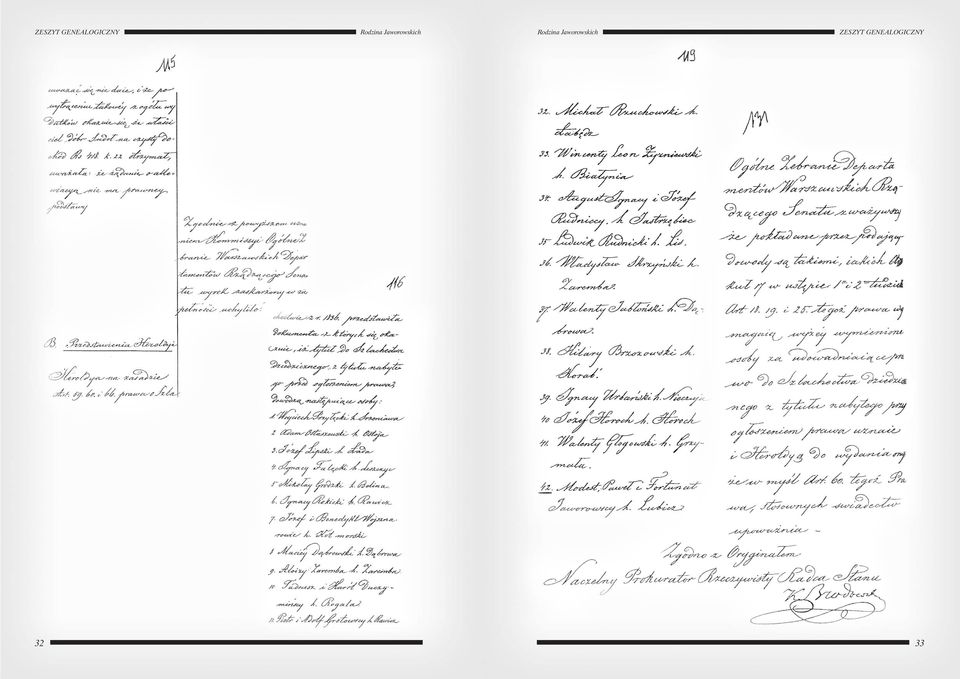 ZESZYT GENEALOGICZNY
Rodzina Jaworowskich
115
uważać się nie daie, i że po
wyłączeniu takowéy z ogółu wy
datków okazuie się że właści
ciel dóbr na czysty do-
chód Rs k. 22 otrzymał,
uważała: że żądanie o allo-
wiacyą nie ma prawney
podstawy
Zgodnie z powyższem uzna
niem Kommissyi Ogólne Z
branie Warszawskich Depar
tamentów Rządzącego Sena
tu wyrok zaskarżony w zu
pełności uchyliło.
B Przedstawienia Heroldyi
Heroldya na zasadzie
Art. 59. 60. i 66. prawa o Szla
116
chectwie z r. 1836. przedstawiła
dokumenta z których się oka-
zuie, iż tytuł do Szlachectwa
Dziedzicznego, z tytułu nabyte
go przed ogłoszeniem prawa,
dowodzą następuiące osoby:
1. Woyciech Przyłęcki h. Szreniawa
2. Adam Ostaszewski h. Ostoja
3. Józef Lipski h. Łada
4. Ignacy h.
5. Mikołay h. Bolina
6. Ignacy Rokicki h. Rawicz
7. Józef i Benedykt Woyszna
rowie h. Kot morski
8. Maciéy Dąbrowski h. Dąbrowa
9. Aloizy Zaremba h. Zaremba
10. Tadeusz i Karól Duczy-
mińscy h. Rogala
11. Piotr i Adolf Grotowscy h. Rawicz
32
Rodzina Jaworowskich
ZESZYT GENEALOGICZNY
119
32. Michał Rzuchowski h.
Łabędz
33. Wincenty Leon Zyzniewski
h. Białynia
34. August Ignacy i Józef
Rudniccy, h. Jastrzębiec
35. Ludwik Rudnicki h. Lis.
36. Władysław Skrzyński h.
Zaremba.
37. Walenty Jabłoński h. Dą-
browa.
38. Hilary Brzozowski h.
Korab.
39. Ignacy Urbański h. Nieczuja
40. Józef Horoch h. Horoch
41. Walenty Głogowski h. Grzy-
mała.
42. Modest, Paweł i Fortunat
Jaworowscy h. Lubicz
131
Ogólne Zebranie Departa
mentów Warszawskich Rzą
dzącego Senatu zważywszy
że pokładane przez podający
dowody są takiemi, iakich Ar
kuł 17 w ustępie 1m i 2m tudzież
Art. 18. 19. i 25. tegoż prawa wy
magaią wyżéy wymienione
osoby za udowadniaiące pra
wo do Szlachectwa dziedzi
cznego z tytułu nabytego przy
ogłoszeniem prawa uznaie
i Heroldyą do wydania oną
że w myśl Art. 60. tegoż Pra
wa, stosownych świadectw
upoważnia –
Zgodno z Oryginałem
Naczelny Prokurator Rzeczywisty Radca Stanu
33